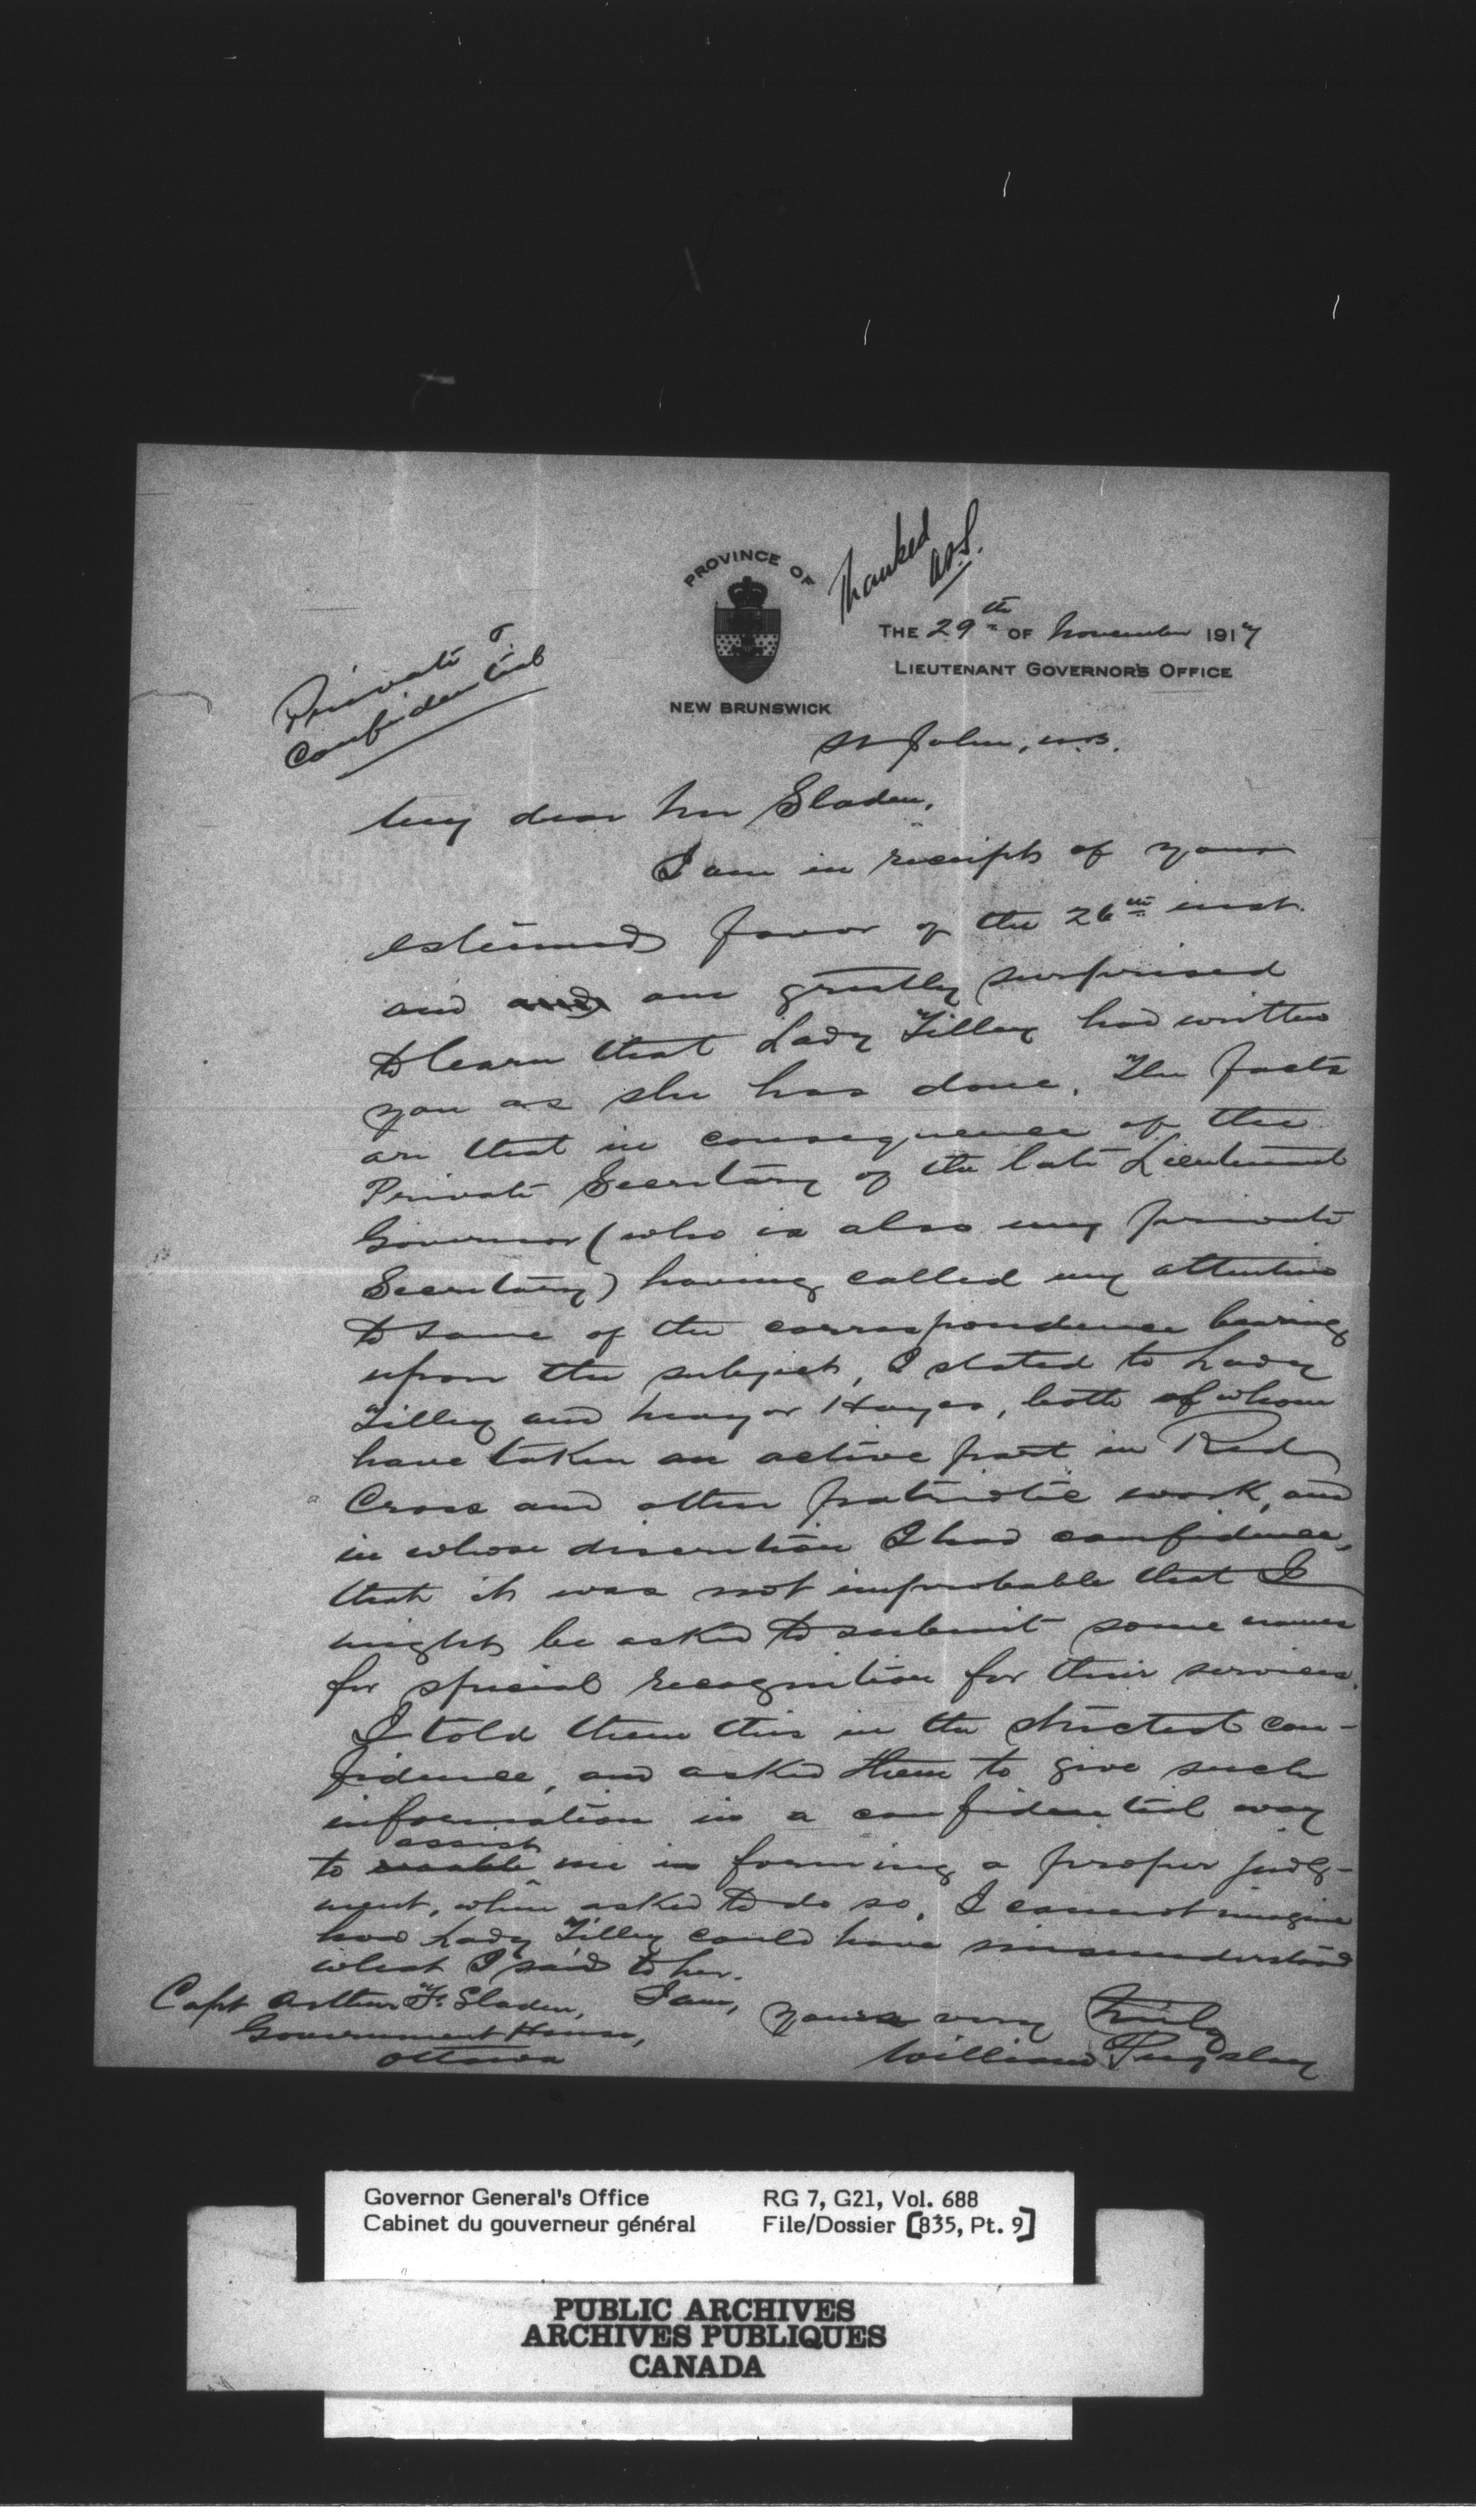 Thanked
A.S.
PROVINCE OF
NEW BRUNSWICK
THE 29th OF November 1917
LIEUTENANT GOVERNOR'S OFFICE
Private &
Confidential
St John, N.B.
My dear Mr Sladen,
I am in receipt of your
esteemed favor of the 26th inst.
and and am greatly surprised
to learn that Lady Tilley had written
you as she has done. The facts
are that in consequence of the
Private Secretary of the late Lieutenant
Governor (who is also my private
Secretary) having called my attention
to some of the correspondence bearing
upon the subject, I stated to Lady
Tilley and Mayor Hayes, both of whom
have taken an active part in Red
Cross and other patriotic work, and
in whose discretion I had confidence,
that it was not improbable that I
might be asked to submit some names
for special recognition for their services.
I told them this in the strictest con-
fidence, and asked them to give such
information in a confidential way
assist
to enable me in forming a proper judg-
ment, when asked to do so. I cannot imagine
how Lady Tilley could have misunderstood
what I said to her.
I am,
Yours very truly
William Pugsley
Capt Arthur F. Sladen,
Government House,
Ottawa
Governor General's Office
Cabinet du gouverneur général
RG 7, G21, Vol. 688
File/Dossier [835, Pt. 9]
PUBLIC ARCHIVES
ARCHIVES PUBLIQUES
CANADA